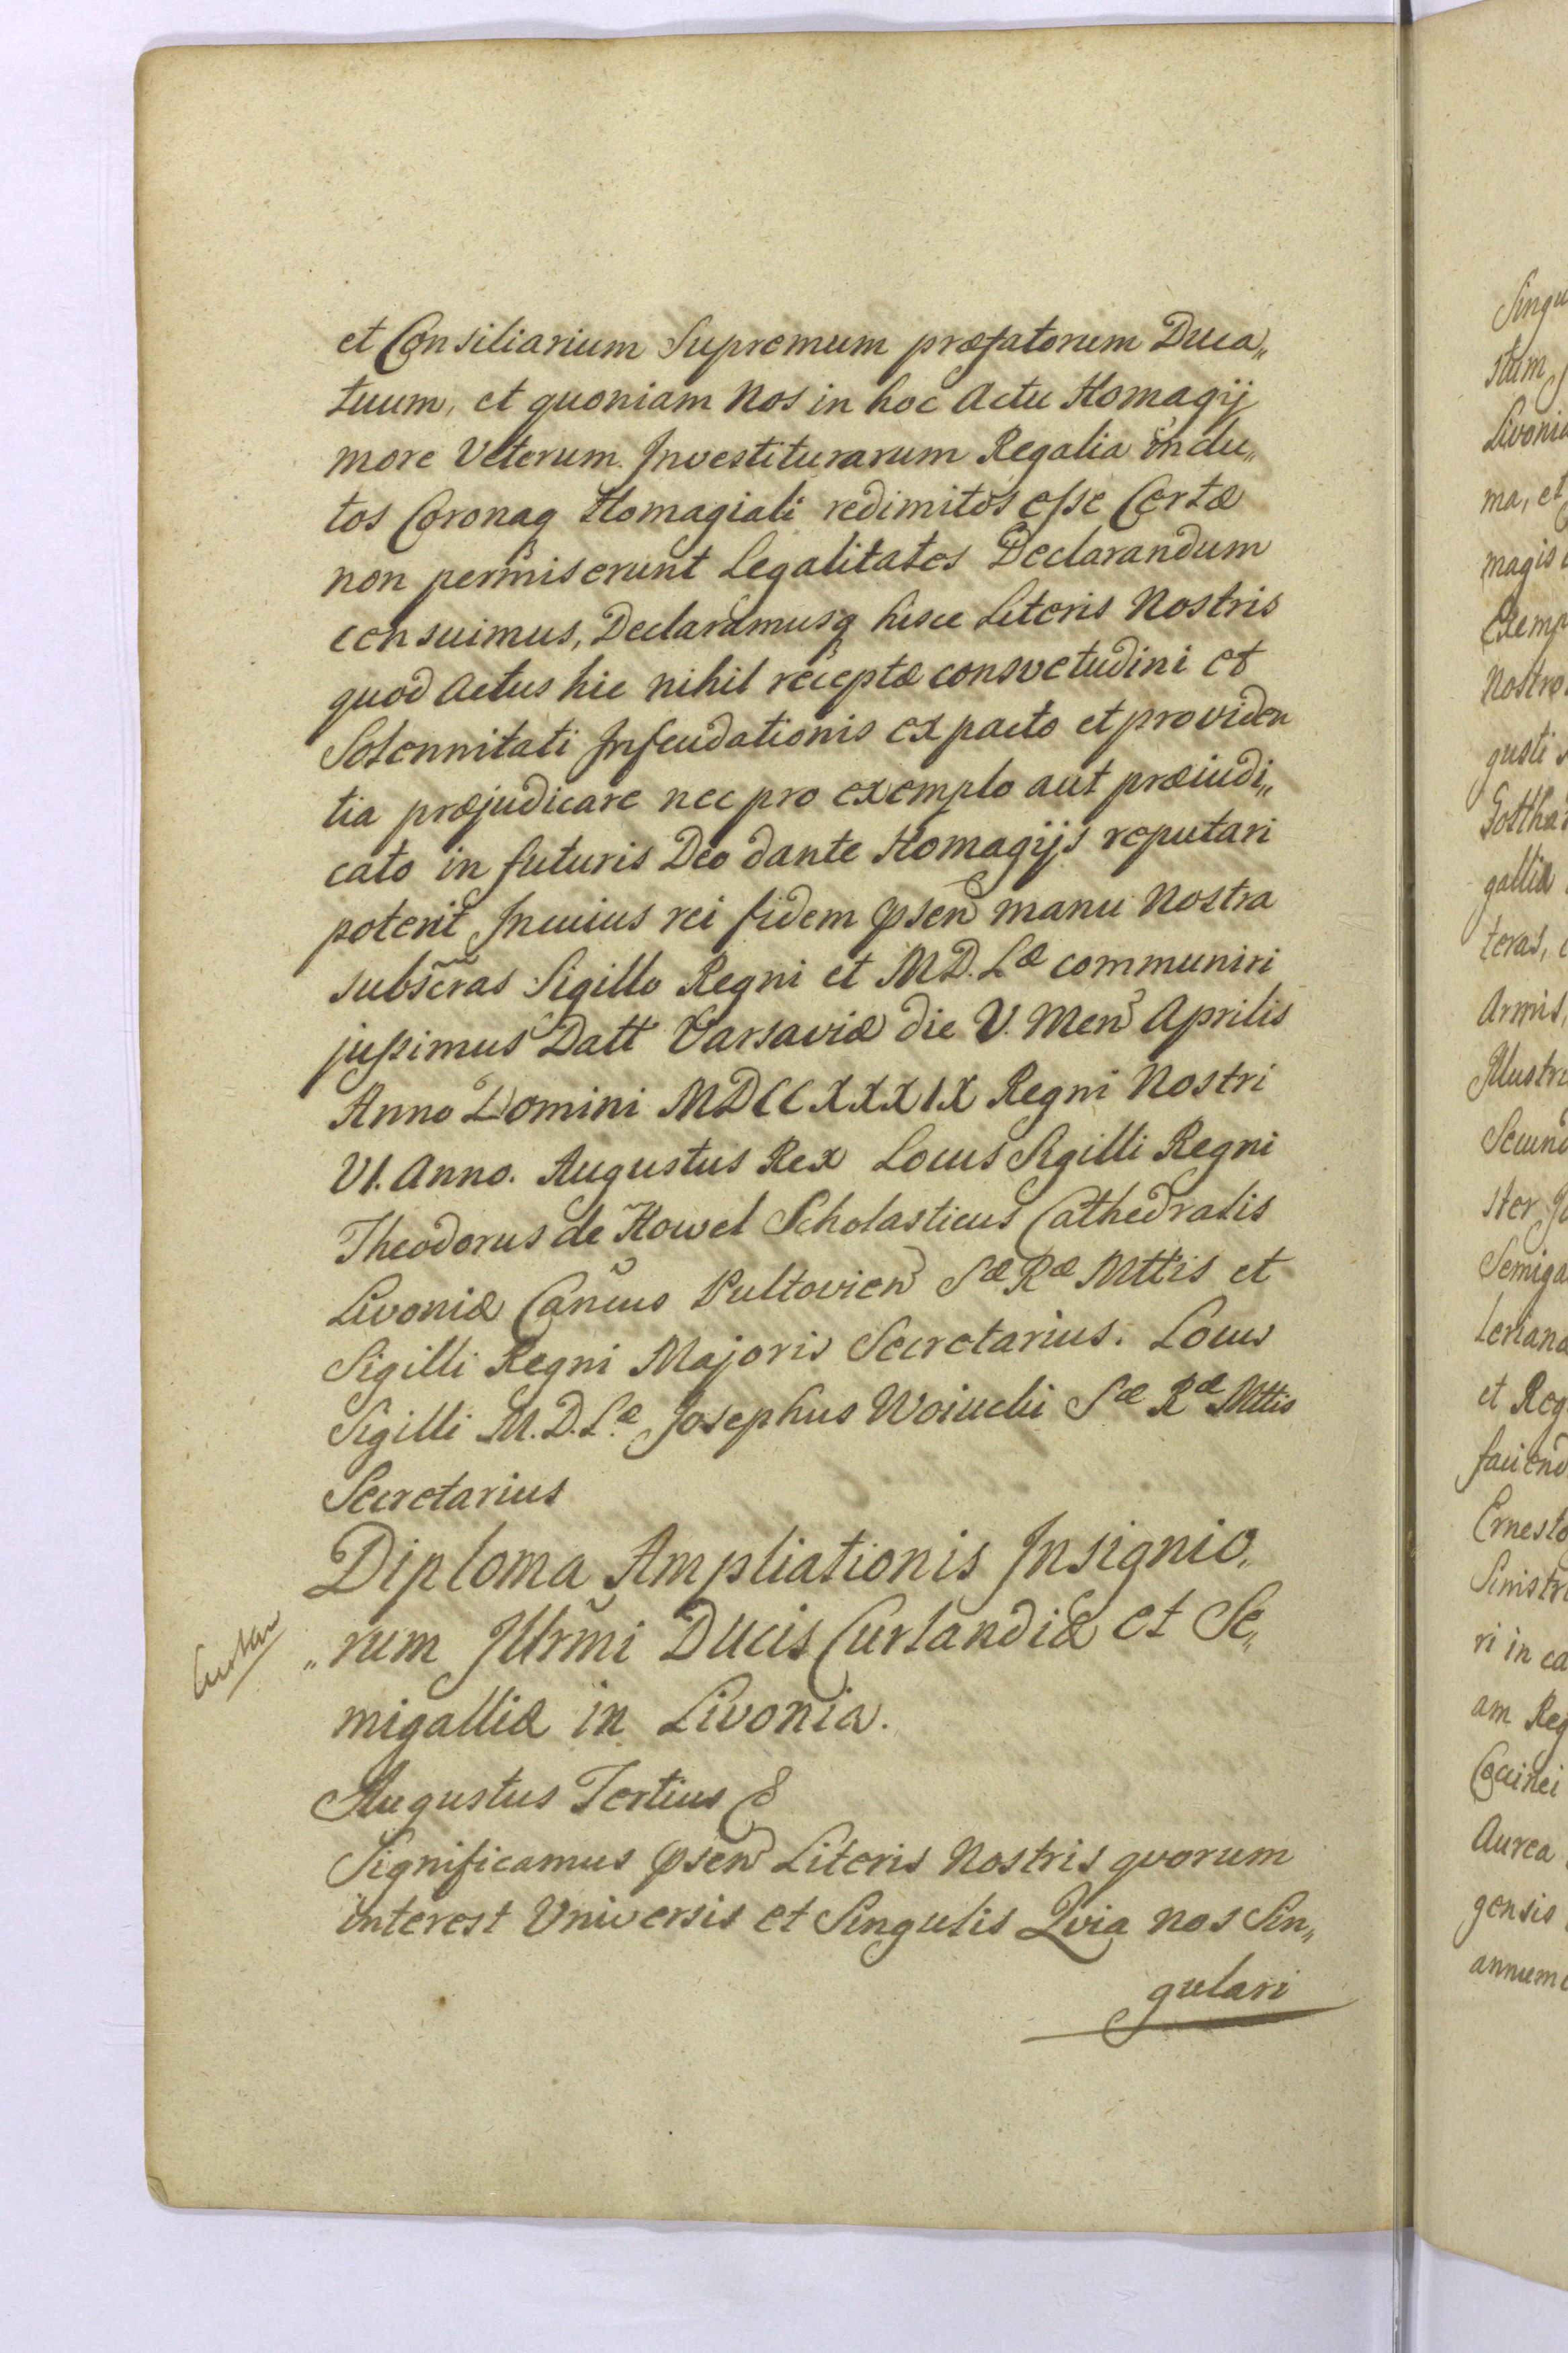 et Consiliarium Supremum præfatorum Duca„
tuum, et quoniam Nos in hoc Actu Homagij
more Veterum Investiturarum Regalia indu„
tos Coronaq Homagiali redimitos esse Certæ
non permiserunt Legalitates Declarandum
censuimus, Declaramusq hisce Literis Nostris
quod Actus hic nihil receptæ consvetudini et
Solennitati Infeudationis ex pacto et providen
tia præjudicare nec pro exemplo aut præiudi„
cato in futuris Deo dante Homagijs reputari
poterit In cuius rei fidem psen manu Nostra
subscras Sigillo Regni et M D. Læ communiri
jussimus Datt Varsaviæ die V. Men Aprilis
Anno Domini MDCCXXXIX Regni Nostri
VI. Anno. Augustus Rex Locus Sigilli Regni
Theodorus de Howel Scholasticus Cathedralis
Livoniæ Cancus Pultovien Sæ Ræ Mttis et
Sigilli Regni Majoris Secretarius. Locus
Sigilli M. D. Læ Josephus Woiucki Sæ Ræ Mttis
Secretarius
Diploma Ampliationis Insignio„
„rum Illrmi Ducis Curlandiæ et Se„
migalliæ in Livonia.
Augustus Tertius &
Significamus psen Literis Nostris qvorum
interest Universis et Singulis Qvia nos Sin„
gulari
Singu
stam
Livonia
ma, et
magis
Exemp
Nostro
gusti
Gottha
galliæ
teras,
Armis,
Illustri
Secund
ster
Semiga
et Reg
Ernesto
Sinistr
ri in ca
am Reg
Coccinei
Aurea
gensis